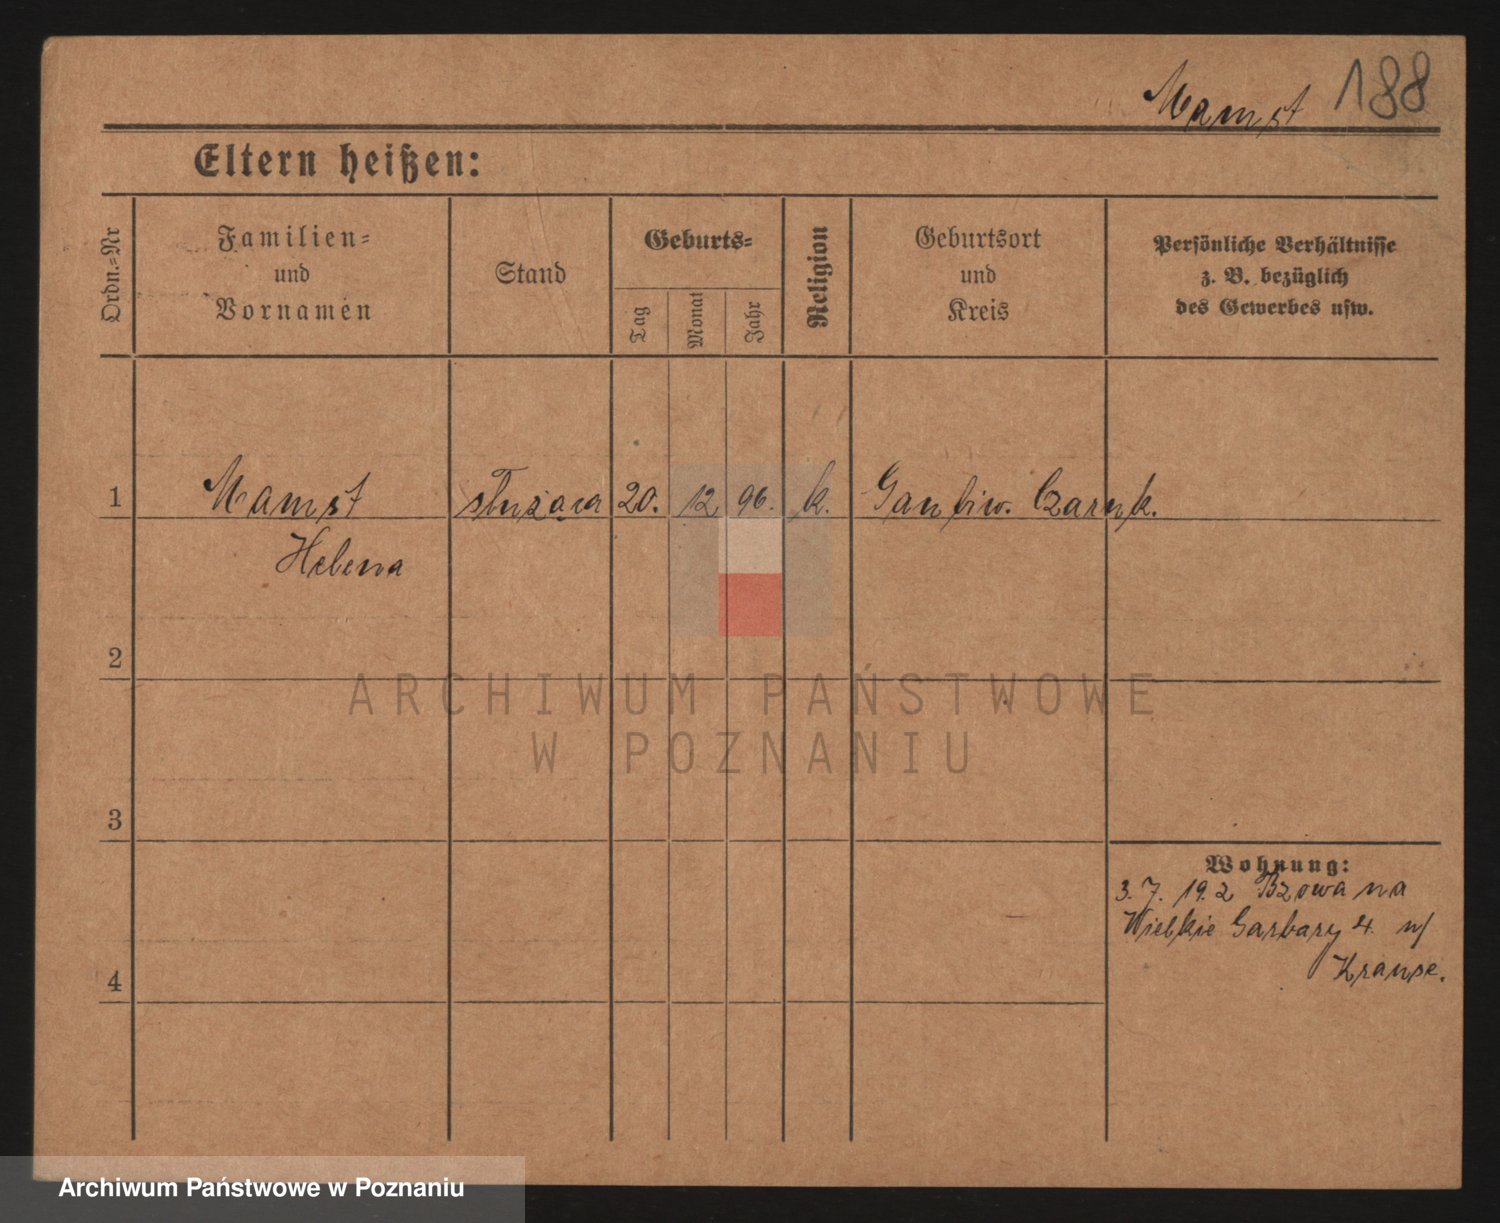 Mamst 188
Eltern heißen:
Ordn.=Nr
Familien=
und
Vornamen
Stand
Geburts=
Tag
Monat
Jahr
Religion
Geburtsort
und
Kreis
Persönliche Verhältnisse
z. B. bezüglich
des Gewerbes usw.
1 Mamst służąca 20. 12 96. k. Czarnk.
Helena
2
3
4
Wohnung:
3. 7. 19.2 na
Wielkie Garbary 4. u/
Krause.
ARCHIWUM PAŃSTWOWE
W POZNANIU
Archiwum Państwowe w Poznaniu